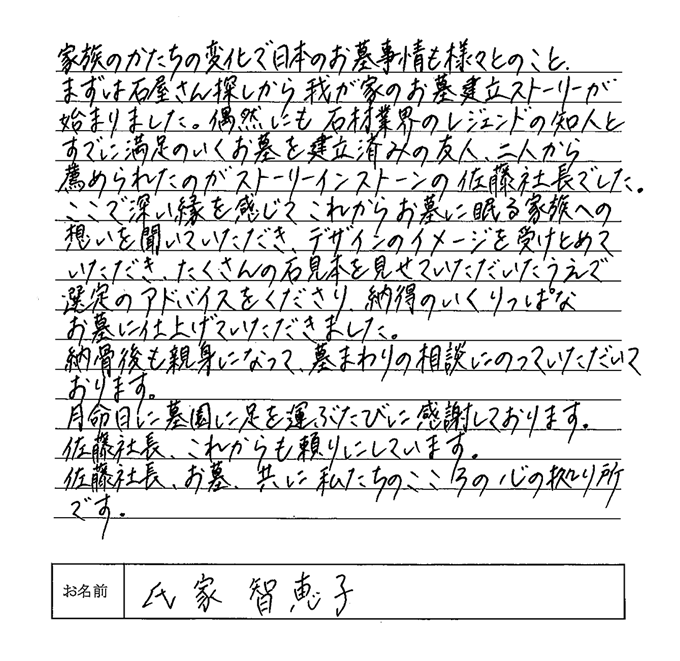 家族のかたちの変化で日本のお墓事情も様々とのこと.
まずは石屋さん探しから 我が家のお墓建立ストーリーが
始まりました。偶然にも 石材業界のレジェンドの知人と
すでに満足のいくお墓を建立済みの友人、二人から
薦められたのがストーリーインストーンの佐藤社長でした。
ここで深い縁を感じて これからお墓に眠る家族への
想いを聞いていただき、デザインのイメージを受けとめて
いただき、たくさんの石見本を見せていただいたうえで
選定のアドバイスをくださり、納得のいくりっぱな
お墓に仕上げていただきました。
納骨後も親身になって、墓まわりの相談にのっていただいて
おります。
月命日に墓園に足を運ぶたびに感謝しております。
佐藤社長、これからも頼りにしています。
佐藤社長、お墓、共に私たちのこころの心の拠り所
です。
お名前 氏家 智恵子